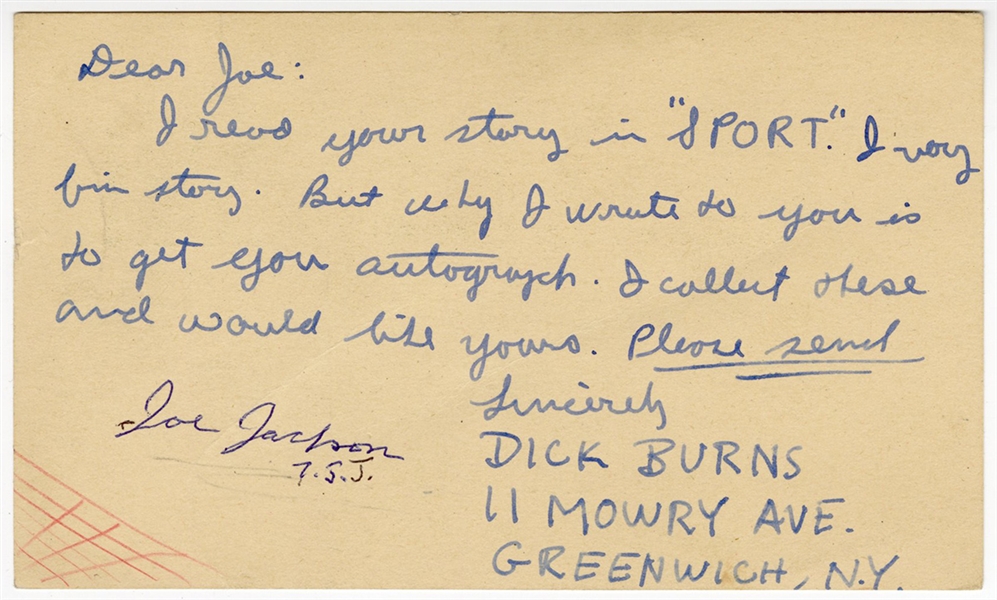 Dear Joe:
I read your story in "SPORT." I very
fin story. But why I wrote to you is
to get you autograph. I collect these
and would like yours. Please send
Sincerely
DICK BURNS
11 MOWRY AVE.
GREENWICH, N.Y.
Joe Jackson
T.S.J.